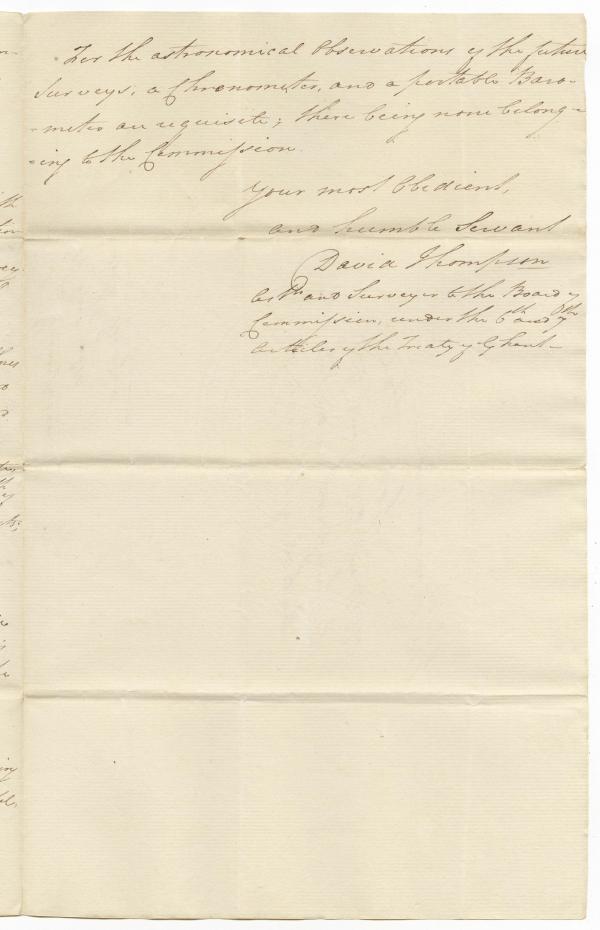 For the astronomical Observations of the future
Surveys, a Chronometer, and a portable Baro-
-meter are requisite; there being none belong-
-ing to the Commission.
Your most Obedient,
and humble Servant
David Thompson
Astr and Surveyor to the Board of
Commission, under the 6th and 7th
Articles of the Treaty of Ghent-